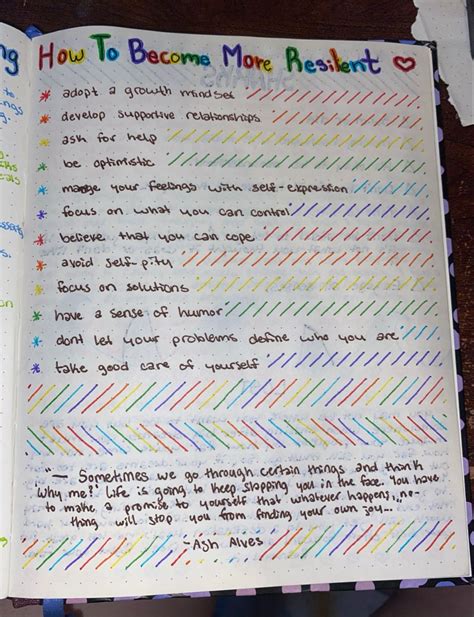 How To Become More Resilent
adopt a growth mindset
develop supportive relationships
ask for help
be optimistic
manage your feelings with self-expression
focus on what you can control
believe that you can cope
avoid self-pity
focus on solutions
have a sense of humor
dont let your problems define who you are
take good care of yourself
"— Sometimes we go through certain things and think
why me?' Life is going to keep slapping you in the face. You have
to make a promise to yourself that whatever happens, no-
thing will stop you from finding your own joy...
-Ash Alves